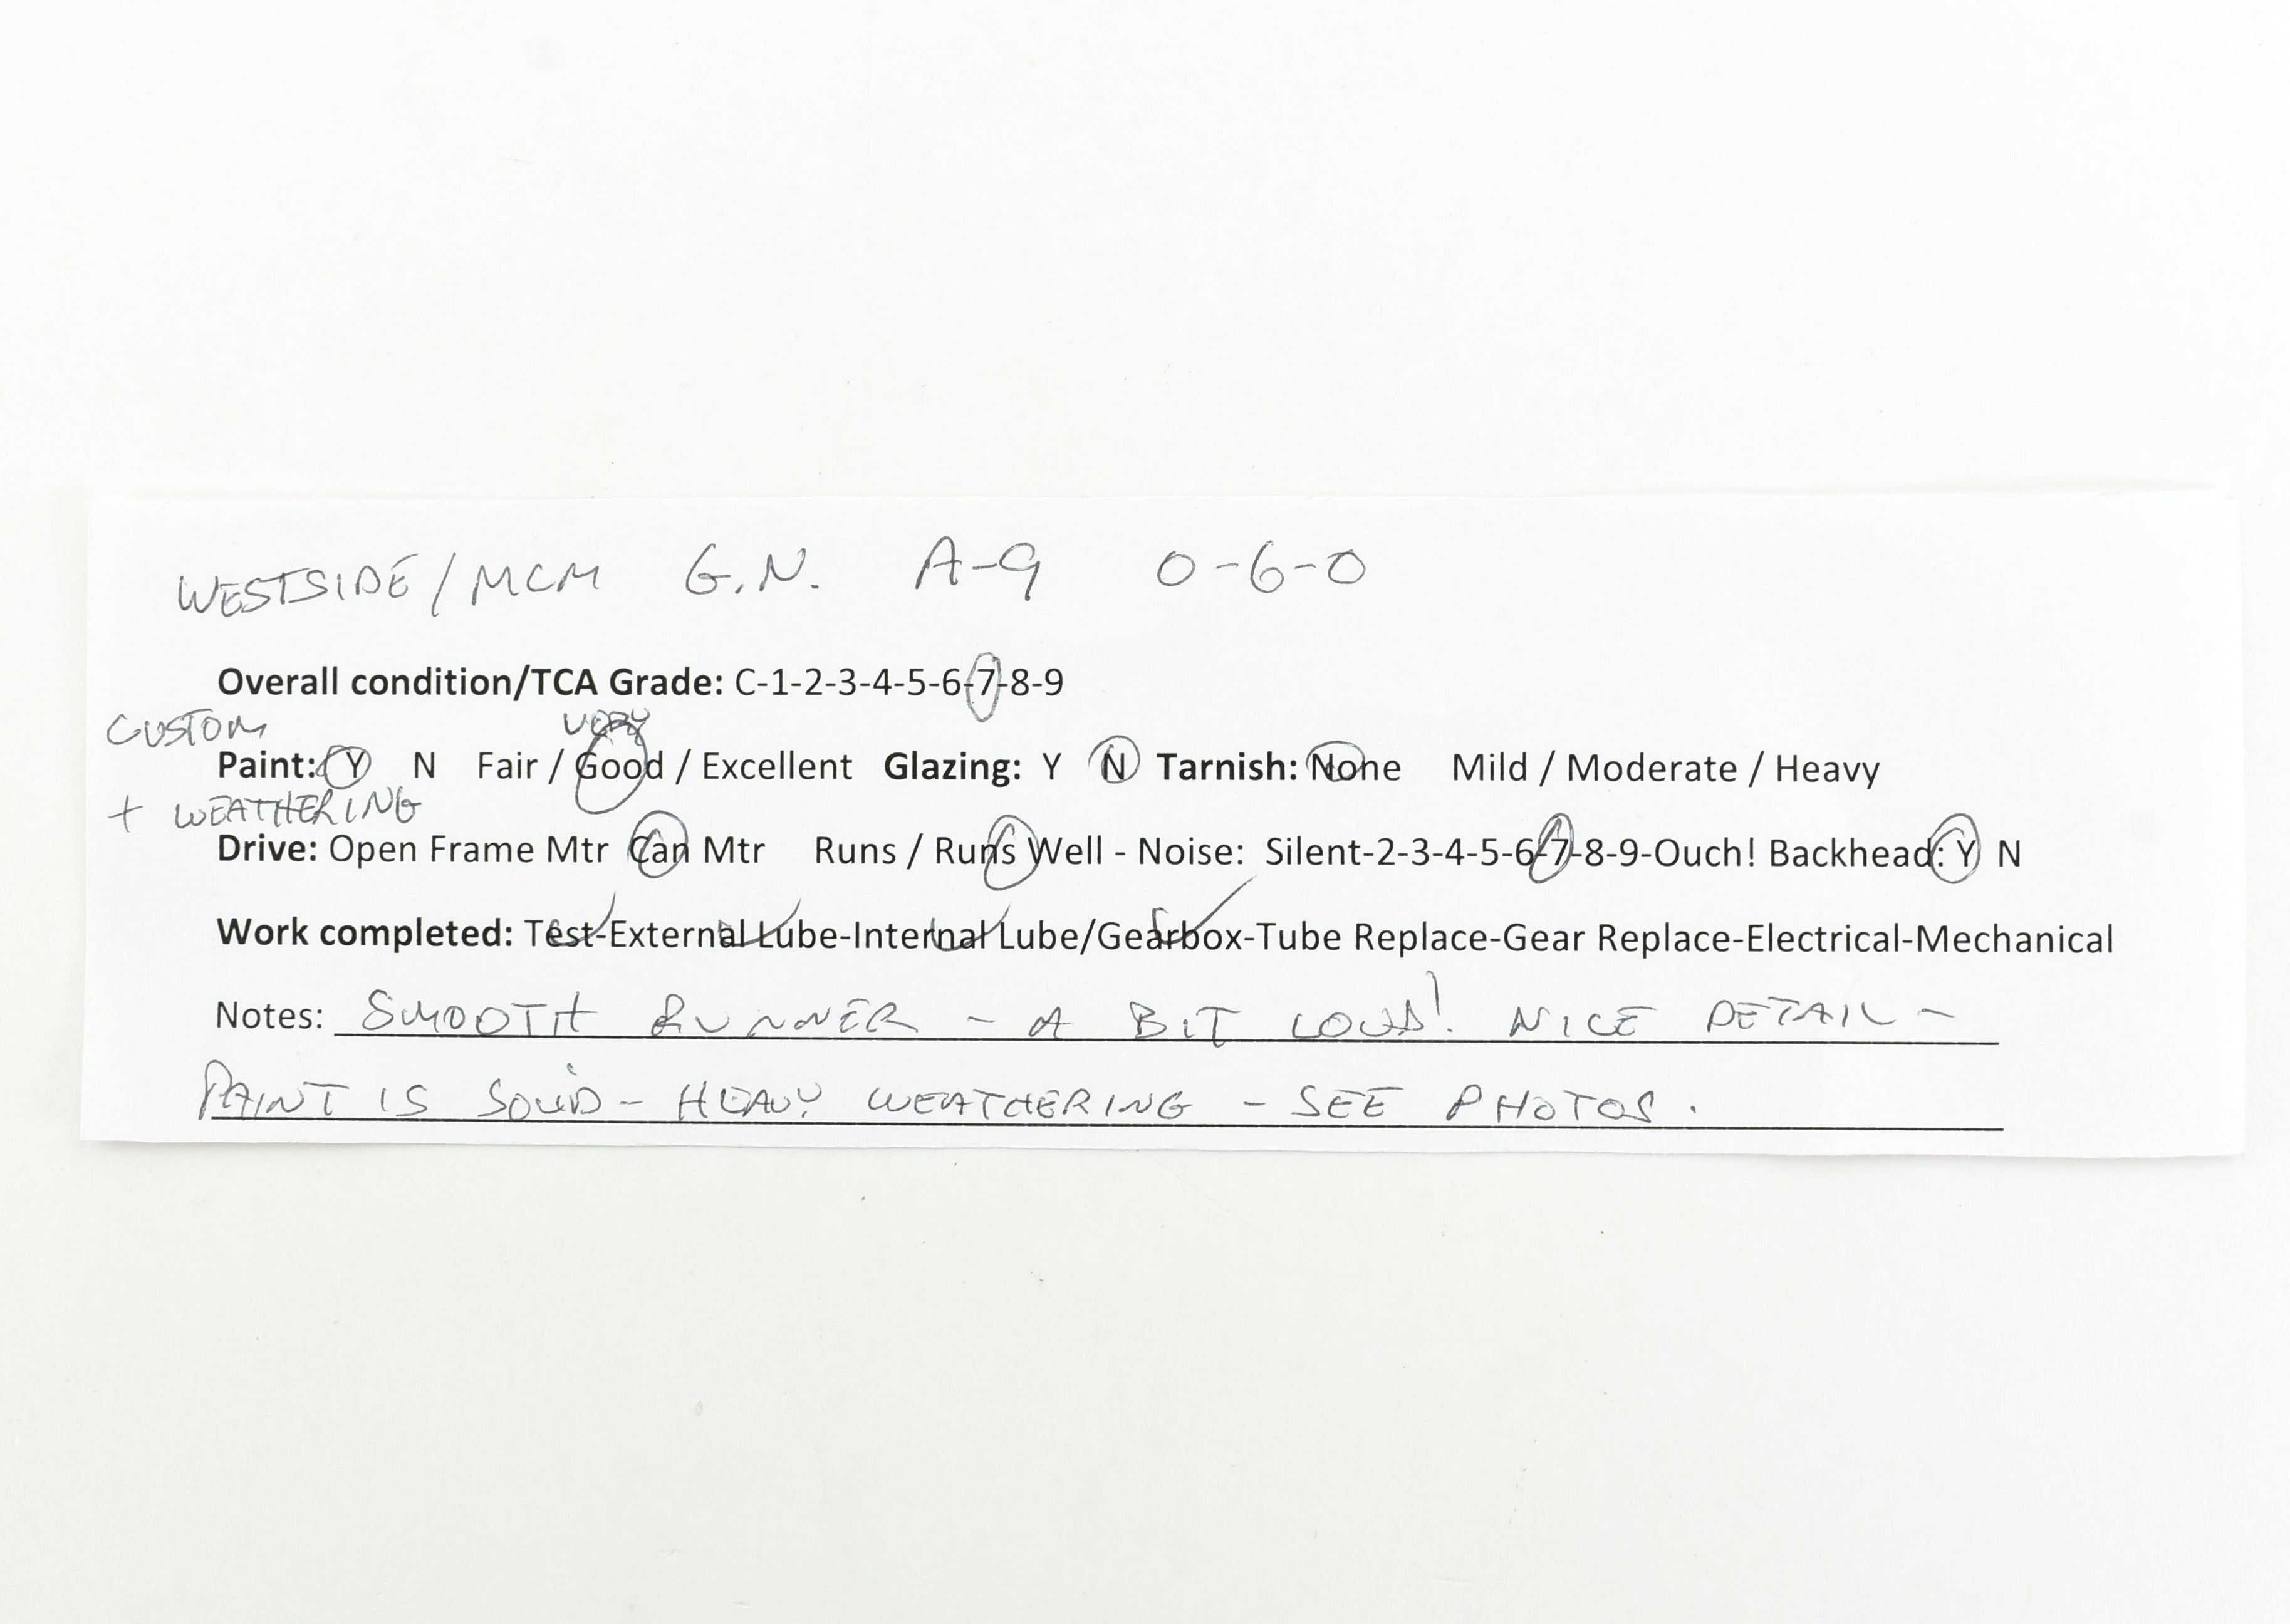 WESTSIDE/MCM G.N. A-9 0-6-0
Overall condition/TCA Grade: C-1-2-3-4-5-6-7-8-9
CUSTOM VERY
Paint: Y N Fair / Good / Excellent Glazing: Y N Tarnish: None Mild / Moderate / Heavy
+ WEATHERING
Drive: Open Frame Mtr Can Mtr Runs / Runs Well - Noise: Silent-2-3-4-5-6-7-8-9-Ouch! Backhead: Y N
Work completed: Test-External Lube-Internal Lube/Gearbox-Tube Replace-Gear Replace-Electrical-Mechanical
Notes: SMOOTH RUNNER - A BIT LOUD! NICE DETAIL -
PAINT IS SOLID - HEAVY WEATHERING - SEE PHOTOS.